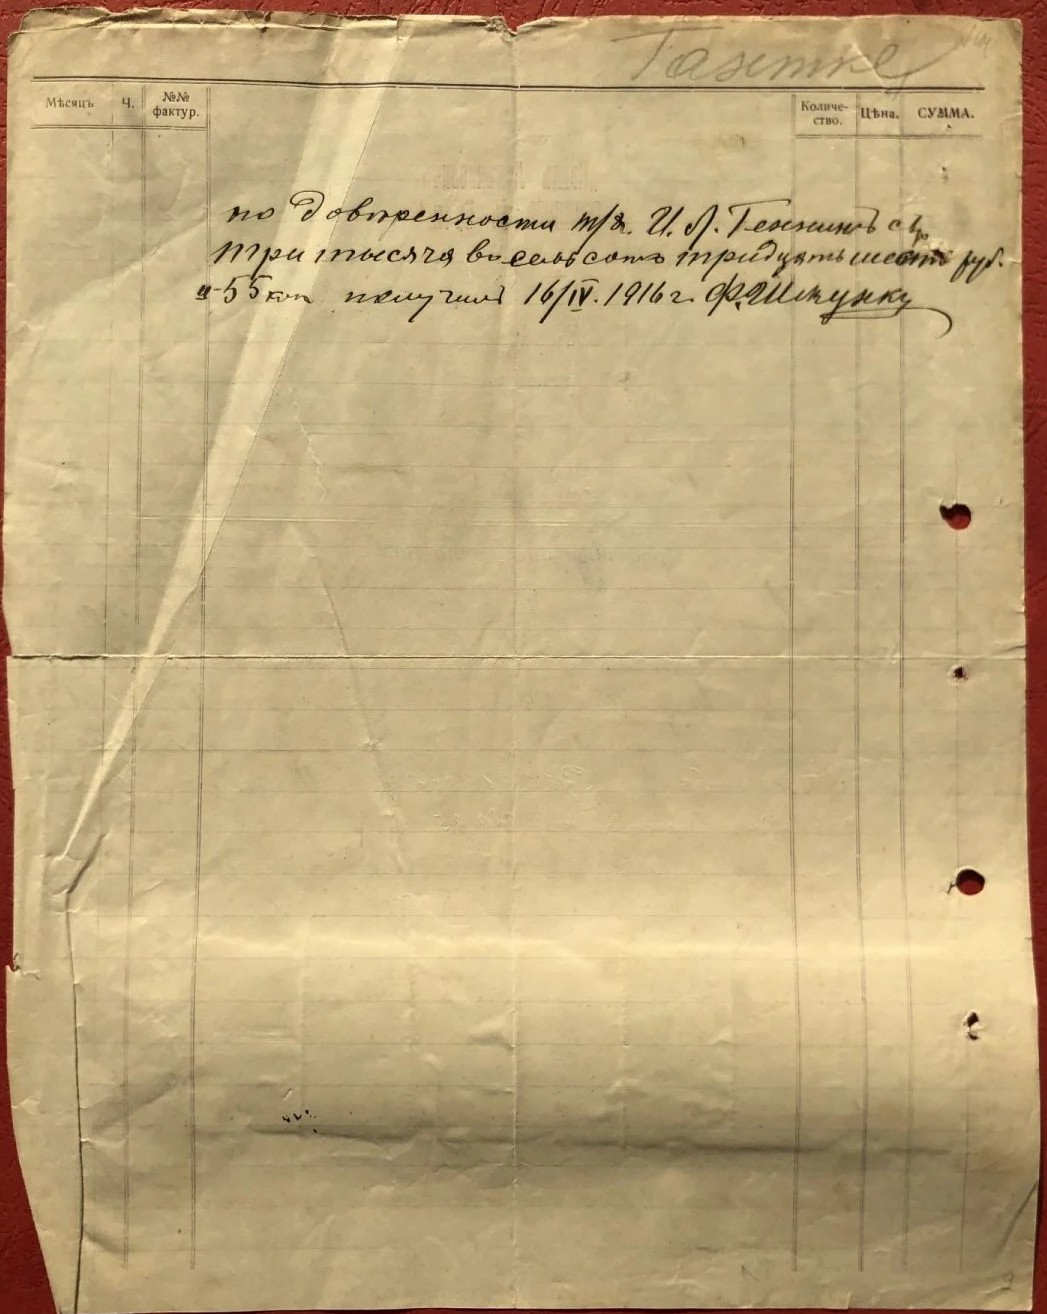 Гантке
Мѣсяцъ Ч. №№ фактур. Количество. Цѣна. СУММА.
по доверенности т/д. И. Л. Геннингъ с
три тысяча восемьсотъ тридцать шесть руб.
и 55 коп получилъ 16/IV. 1916 г.